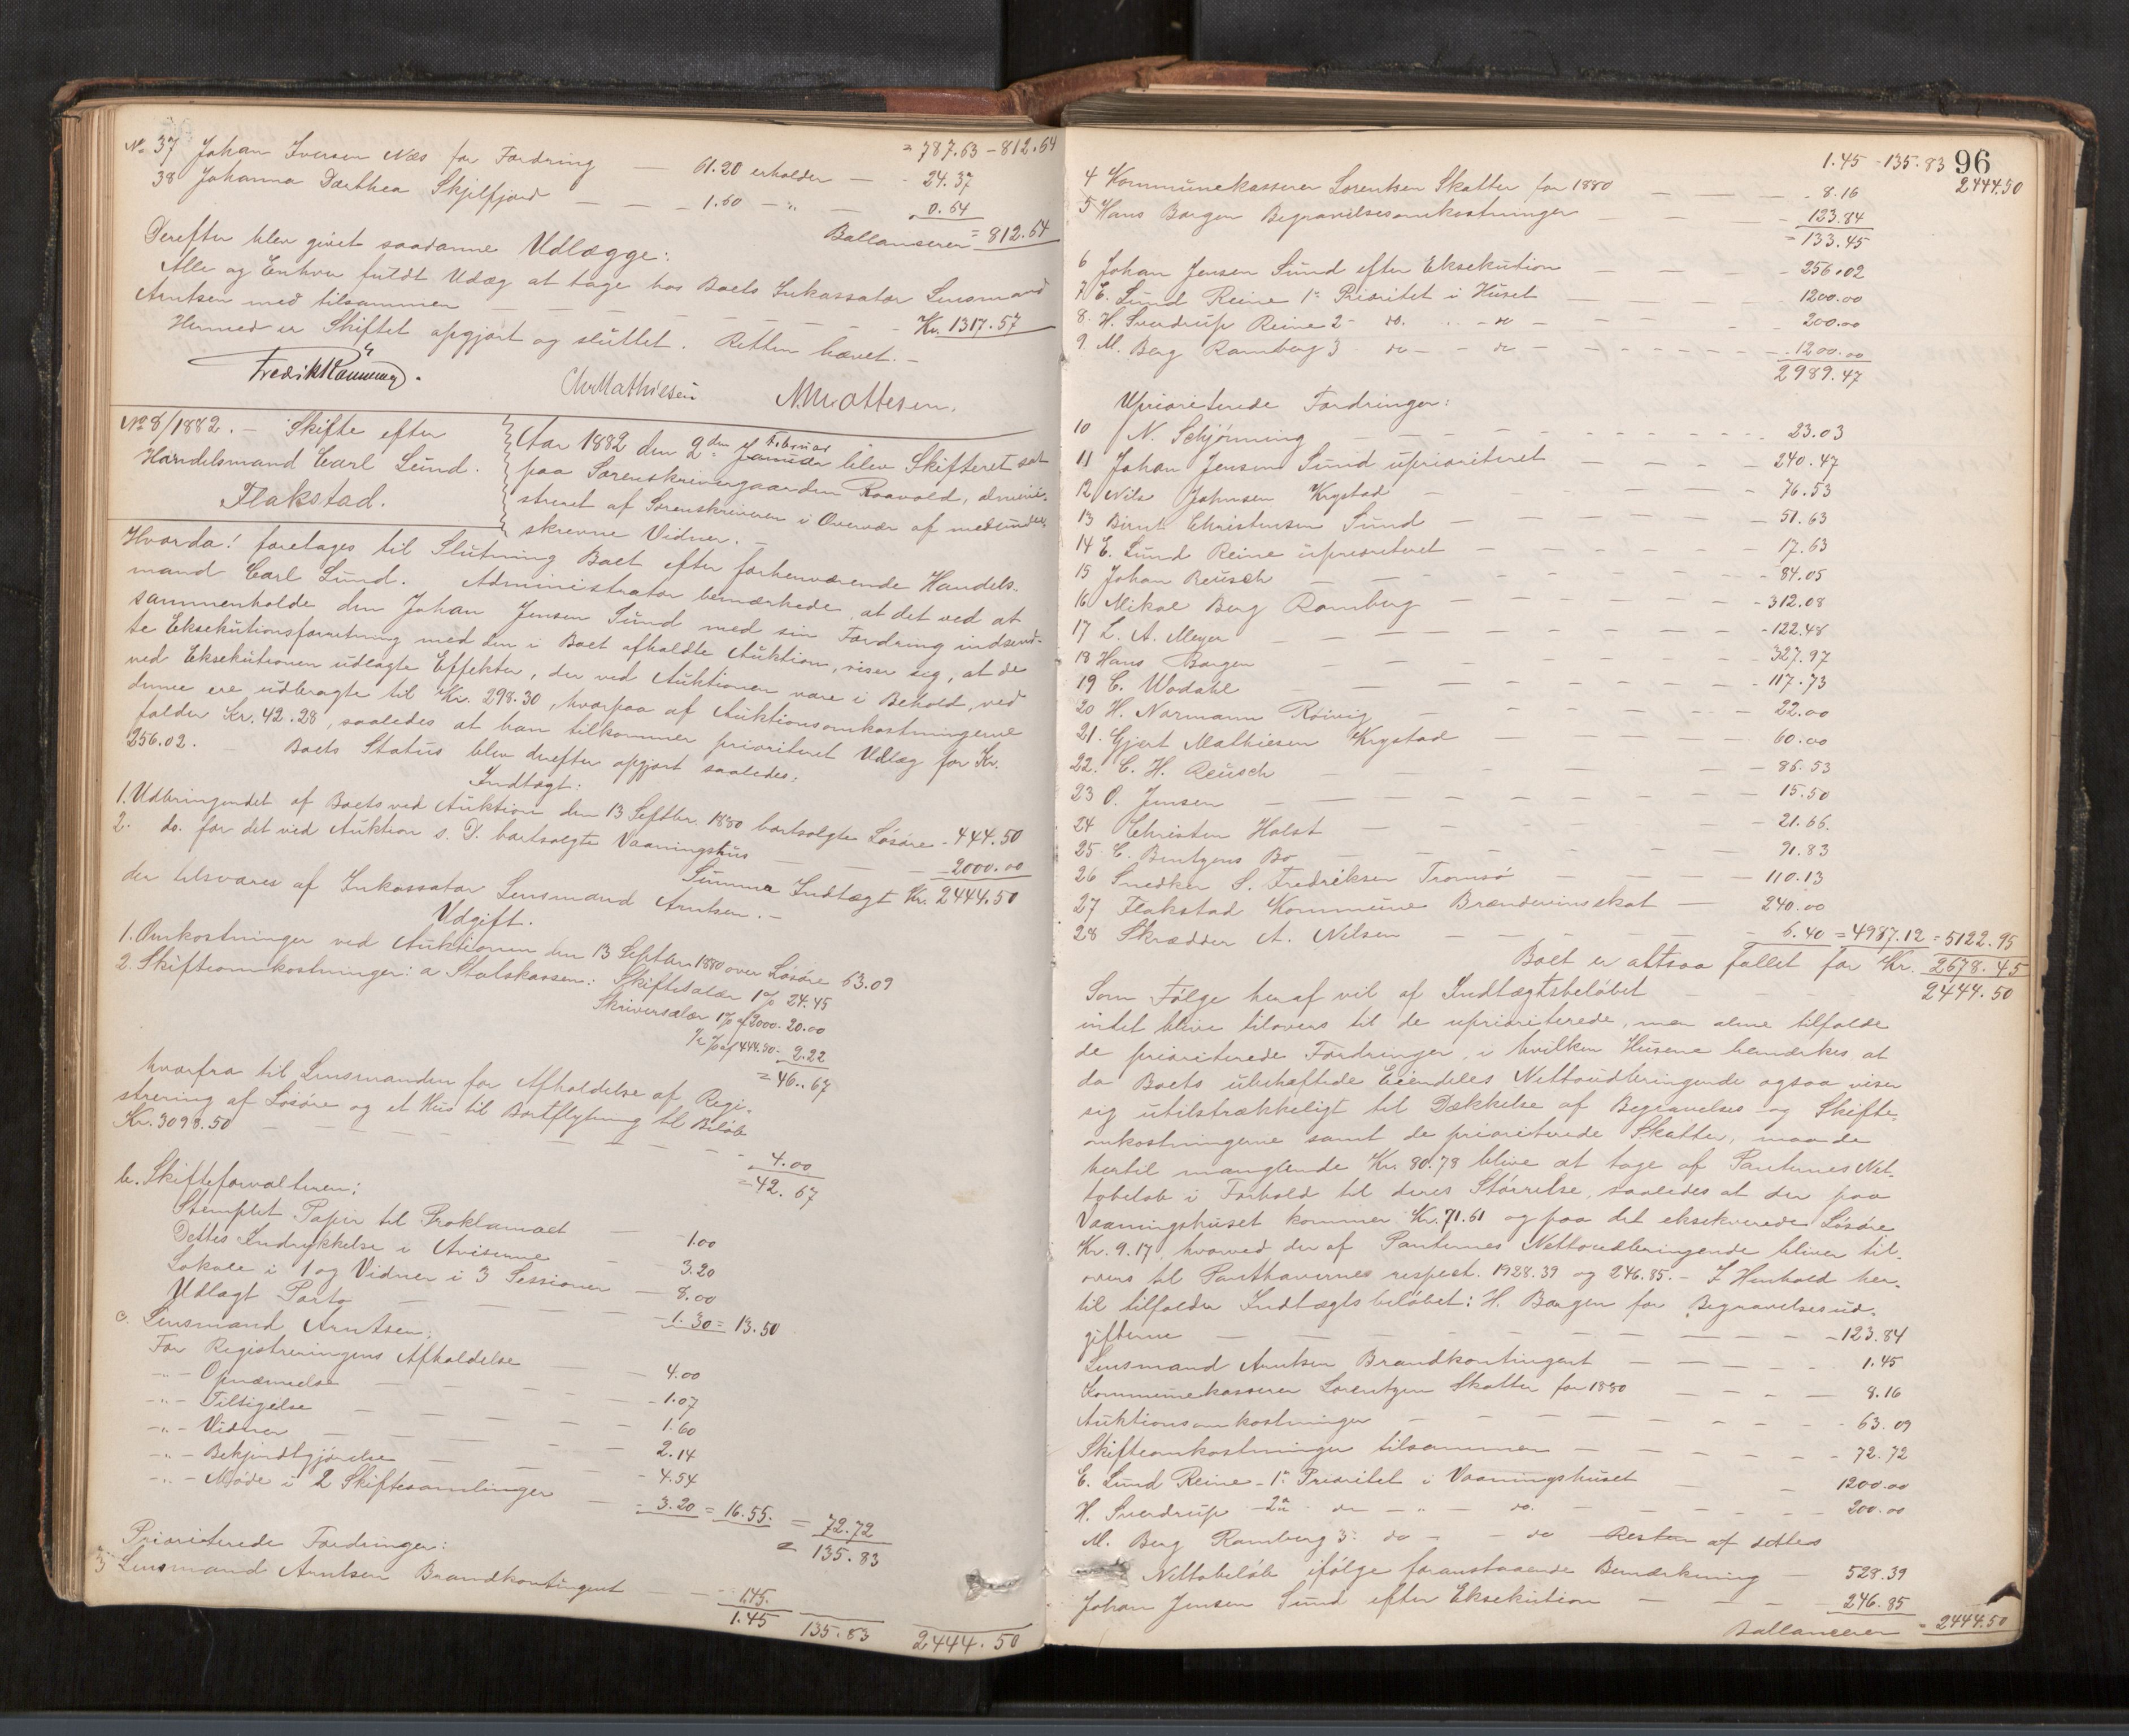 = 787.63 - 812.64
No 37 Johan Iversen Næs for Fordring — 61.20 erholder — 24.37
38 Johanna Dorthea Skjelfjord — — 1.60 — " — 0.64
Ballanserer = 812.64
Derefter blev givet saadanne Udlægge:
Alle og Enhver fuldt Udlæg at tage hos Boets Inkassator Lensmand
Arntsen med tilsammen — — — — — Kr. 1317.57
Hermed er Skiftet opgjort og sluttet. Retten hævet. —
Chr Mathiesen
No 8/1882. — Skifte efter
Handelsmand Carl Lund.
Flakstad.
Aar 1882 den 2den Januar Februar blev Skifteret sat
paa Sorenskrivergaarden Raavold, admini-
streret af Sorenskriveren i Overvær af medunder-
skrevne Vidner. —
Hvorda! foretages til Slutning Boet efter forhenværende Handels-
mand Carl Lund. Administrator bemærkede at det ved at
sammenholde den Johan Jensen Sund med sin Fordring indsend-
te Eksekutionsforretning med den i Boet afholdte Auktion, viser sig, at de
ved Eksekutionen udlagte Effekter, der ved Auktionen vare i Behold, ved
denne ere udbragte til Kr. 298.30, hvorpaa af Auktionsomkostningerne
falder Kr. 42.28, saaledes at han tilkommer prioriteret Udlæg for Kr.
256.02. Boets Status blev derefter opgjort saaledes:
Indtægt:
1. Udbringendet af Boets ved Auktion den 13 Septbr. 1880 bortsolgte Løsøre - 444.50
2. do. for det ved Auktion s. D. bortsolgte Vaaningshus — — 2000.00
Summa Indtægt Kr. 2444.50
der tilsvares af Inkassator Lensmand Arntsen. —
Udgift.
1. Omkostninger ved Auktionen den 13 Septbr 1880 over Løsøre 63.09
2. Skifteomkostninger: a Statskassen: Skiftesalær 1% 24.45
Skriversalær 1% af 2000 - 20.00
1/2 % af 444.50 - 2.22
= 46.67
hvorfra til Lensmanden for Afholdelse af Regi-
strering af Løsøre og et Hus til Bortflytning til Beløb
Kr. 3098.50 — — — — — 4.00
= 42.67
b. Skifteforvalteren:
Stemplet Papir til Proklamaet — 1.00
Dettes Indrykkelse i Aviserne — 3.20
Lokale i 1 og Vidner i 3 Sessioner — 8.00
Udlagt Porto — — — 1.30 = 13.50
c. Lensmand Arntsen:
For Registreringens Afholdelse — 4.00
— " — Opnævnelse — — — 1.07
— " — Tilsigelse — — — 1.60
— " — Vidner — — — 2.14
— " — Bekjendtgjørelse — — — 4.54
— " — Møde i 2 Skiftesamlinger — 3.20 = 16.55. = 72.72
= 135.83
Prioriterede Fordringer:
3 Lensmand Arntsen Brandkontingent — — 1.45.
1.45 135.83 2444.50
96
1.45 - 135.83 2444.50
4 Kommunekasserer Lorentsen Skatter for 1880 — — 8.16
5 Hans Borgen Begravelsesomkostninger — — 123.84
= 133.45
6 Johan Jensen Sund efter Eksekution — — — 256.02
7 E. Lund Reine 1ste Prioritet i Huset — — — 1200.00
8. H. Sverdrup Reine 2 - do. — do — — 200.00
9. M. Berg Ramberg 3 do — do — — — 1200.00
2989.47
Uprioriterede Fordringer:
10 N. Schjønning — — — — 23.03
11 Johan Jensen Sund uprioriteret — — — 240.47
12 Nils Johnsen Krystad — — — 76.53
13 Bernt Christensen Sund — — — 51.63
14 E. Lund Reine uprioriteret — — — 17.63
15 Johan Reusch — — — 84.05
16 Mikal Berg Ramberg — — — 312.08
17 L. A. Meyer — — — 122.48
18 Hans Borgen — — — 327.97
19 C. Wodahl — — — 117.73
20 H. Normann — — — 22.00
21. Gjert Mathiesen Krystad — — — 60.00
22. C. H. Reusch — — — 86.53
23 O. Jensen — — — 15.50
24 Christen Holst — — — 21.66.
25. C. Berntzens Bo — — — 91.83
26 Snedker S. Fredriksen Tromsø — — — 110.13
27 Flakstad Kommune Brændevinsskat — 240.00
28 Skrædder A. Nilsen — — — 6.40 = 4987.12 = 5122.95
Boet er altsaa fallet for Kr. 2678.45
Som Følge heraf vil af Indtægtsbeløbet — — — 2444.50
intet blive tilovers til de uprioriterede, men alene tilfalde
de prioriterede Fordringer, i hvilken Husene bemærkes at
da Boets ubehæftede Eiendeles Nettoudbringende ogsaa viser
sig utilstrækkeligt til Dækkelse af Begravelses- og Skifte-
omkostningerne samt de prioriterede Skatter, maa de
hertil manglende Kr. 80.78 blive at tage af Panternes Net-
tobeløb i Forhold til deres Størrelse, saaledes at der paa
Vaaningshuset kommer Kr. 71.61 og paa det eksekverede Løsøre
Kr. 9.17, hvorved der af Panternes Nettoudbringende bliver til-
overs til Panthaverne respect. 1928.39 og 246.85. — I Henhold her-
til tilfalder Indtægtsbeløbet: H. Borgen for Begravelsesud-
gifterne — — — — — 123.84
Lensmand Arntsen Brandkontingent — — — 1.45
Kommunekasserer Lorentzen Skatter for 1880 — — — 8.16
Auktionsomkostninger — — — 63.09
Skifteomkostninger tilsammen — — — 72.72
E. Lund Reine - 1ste Prioritet i Vaaningshuset — — 1200.00
H. Sverdrup - 2den do — " — do. — — 200.00
M. Berg Ramberg 3: do — — do Resten af dettes
Nettobeløb ifølge foranstaaende Bemærkning — 528.39
Johan Jensen Sund efter Eksekution — — — 246.85
Ballancerer = 2444.50